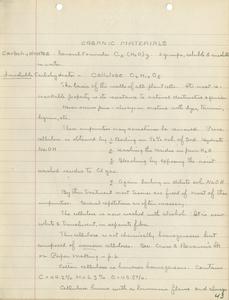 ORGANIC MATERIALS
Carbohydrates - General Formula Cx (H2O)y. 2 groups, soluble & insoluble
in water.
Insoluble Carbohydrates - Cellulose C6 H10 O5
The basis of the walls of all plant cells. Its most re-
markable property is its resistance to natural destructive agencies.
Never occurs pure - always in mixture with dyes, tannin,
lignin, etc.
These impurities may sometimes be removed. Pure
cellulose is obtained by 1. Boiling in 1% sol. of
NaOH
2. Washing the residue in pure H2O
3. Bleaching by exposing the moist
washed residue to Cl gas.
4. Again boiling in dilute soln NaOH.
By this treatment most tissues are freed of most of their
impurities. Several repetitions are often necessary.
The cellulose is now washed with alcohol. It is now
white & translucent, in separate fibres.
This cellulose is not chemically homogeneous but
composed of various celluloses. See Cross & Bevan's
on Paper Making - p. 2.
Cotton cellulose is however homogeneous. Contains
C = 44.2% H = 6.3% O = 49.5%.
Cellulose burns with a luminous flame and
43